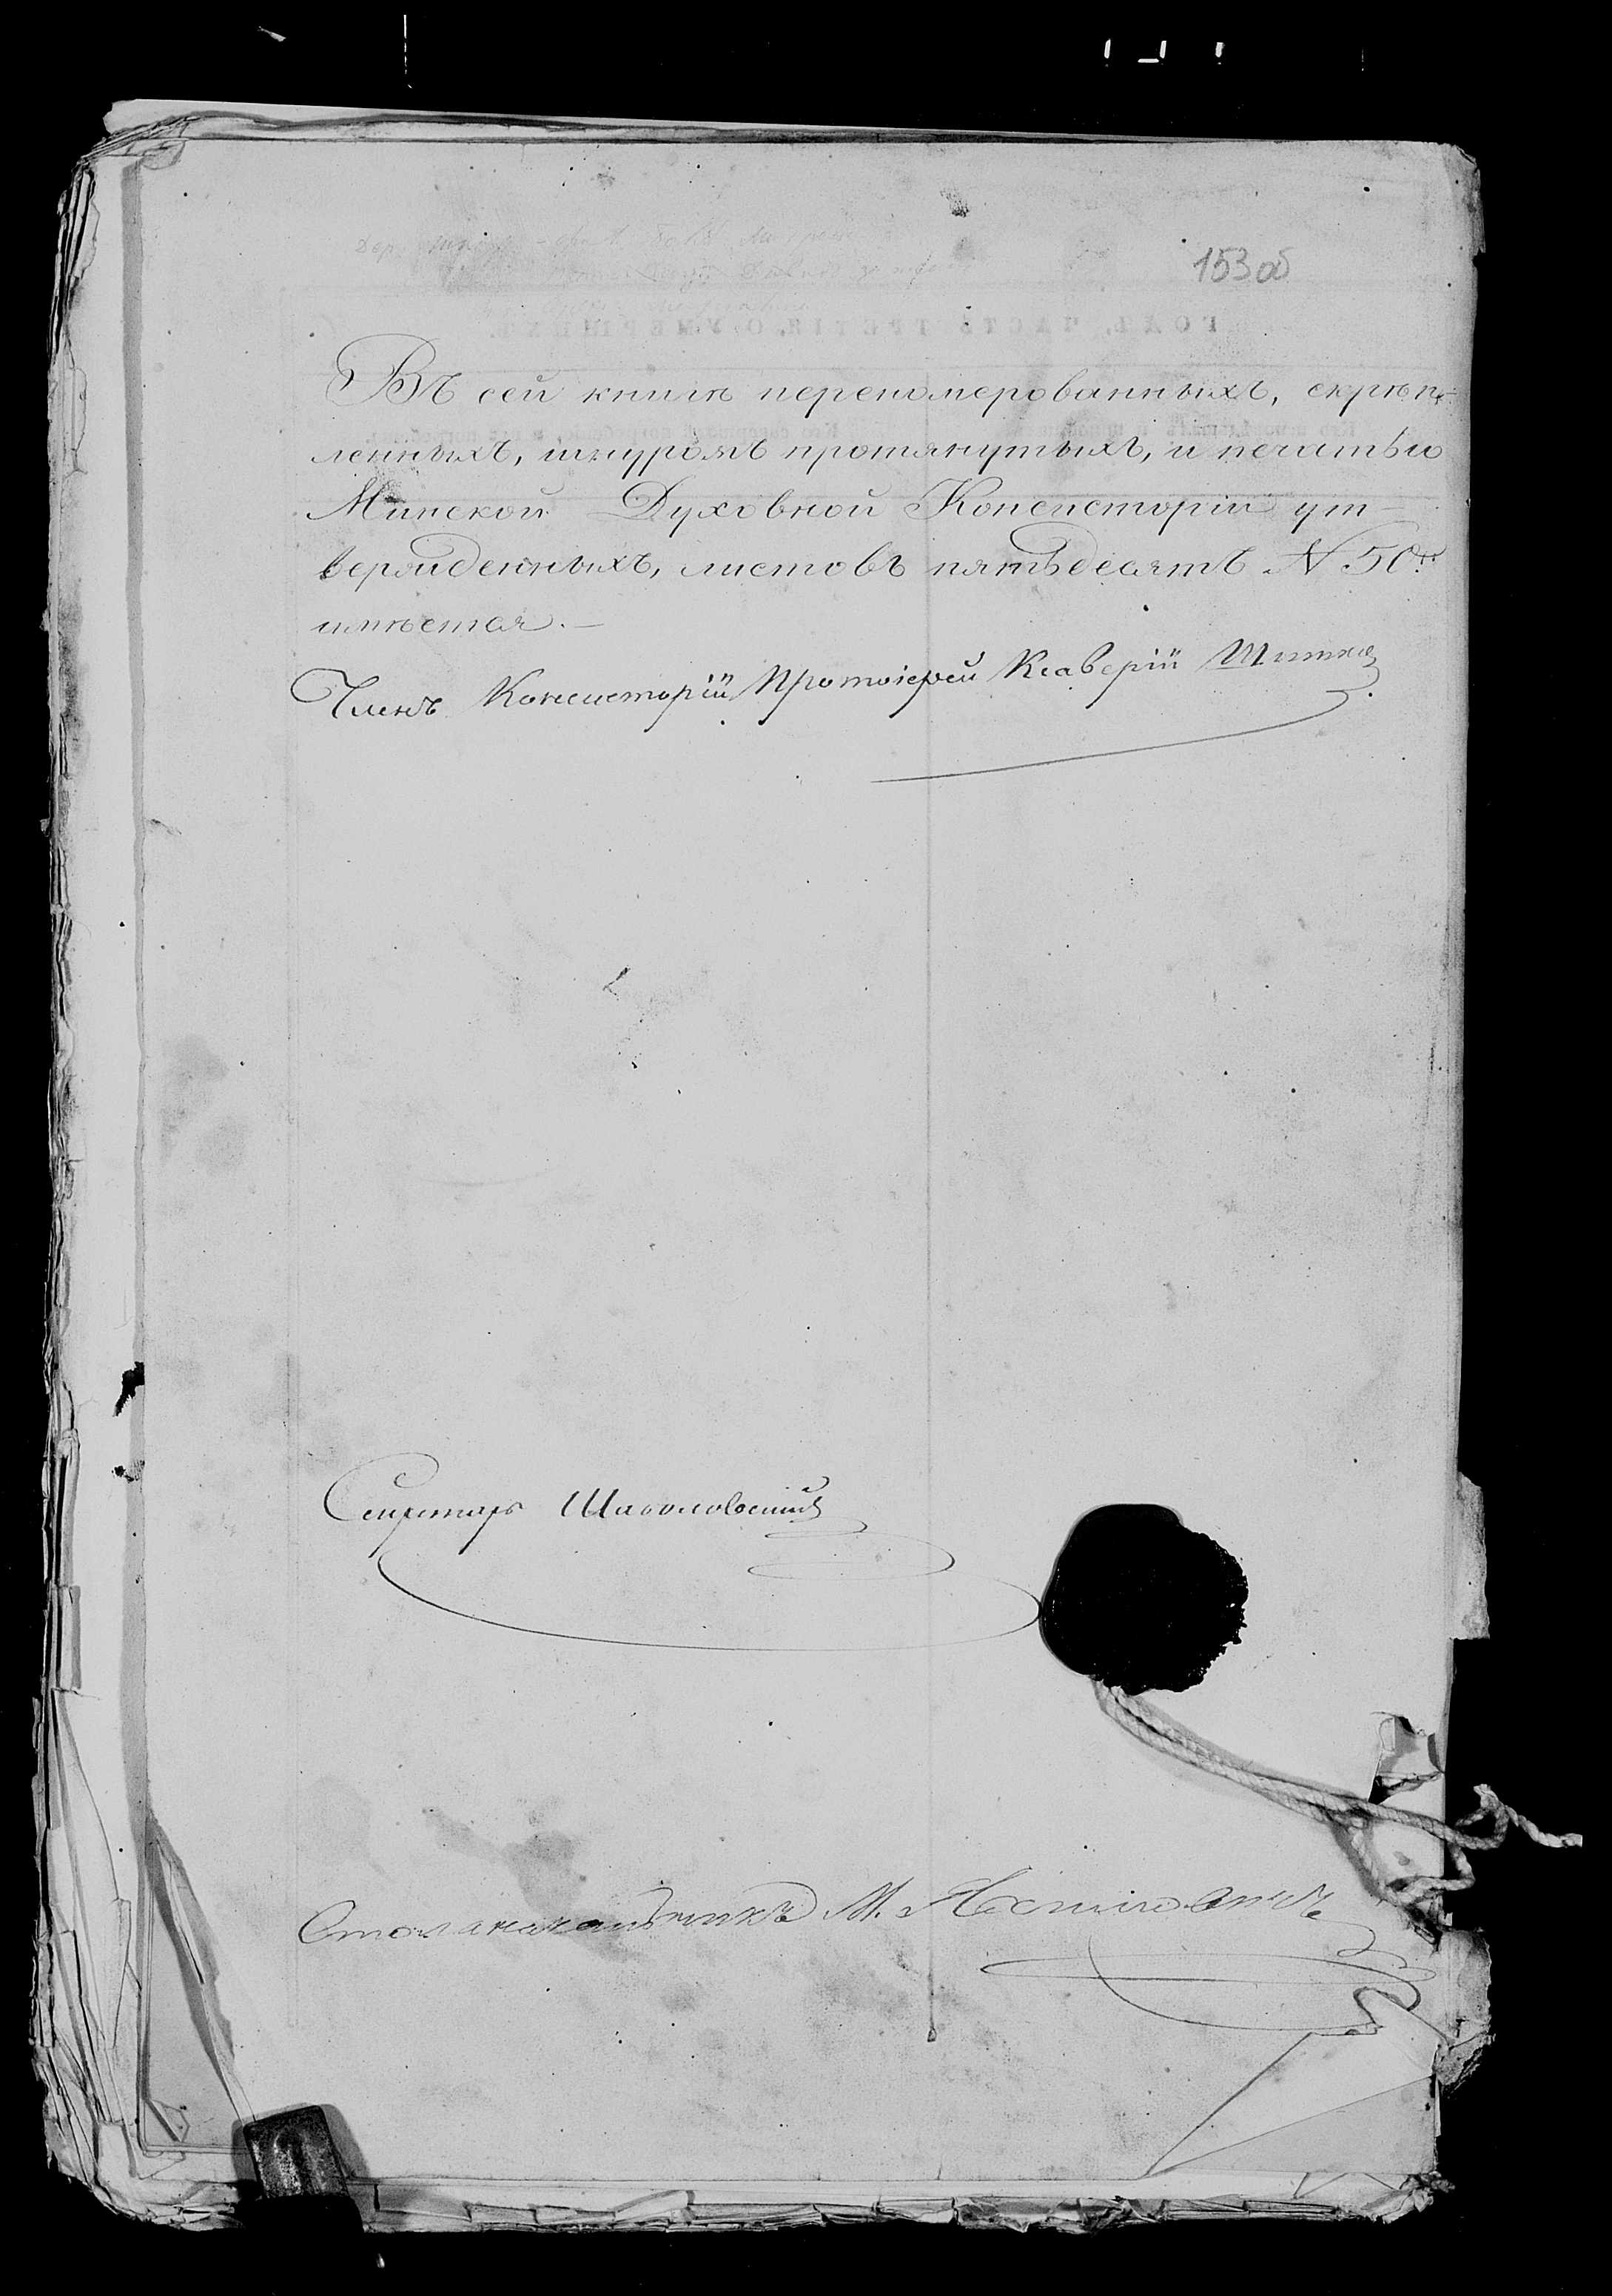 153 об
Въ сей книгѣ перенумерованныхъ, скрѣп-
ленныхъ, шнуромъ протянутыхъ, и печатью
Минской Духовной Консисторіи ут-
вержденныхъ, листовъ пятьдесятъ N 50.ть
имѣется.—
Членъ Консисторіи Протоіерей Ксаверій
Секретарь
Столоначальникъ М.